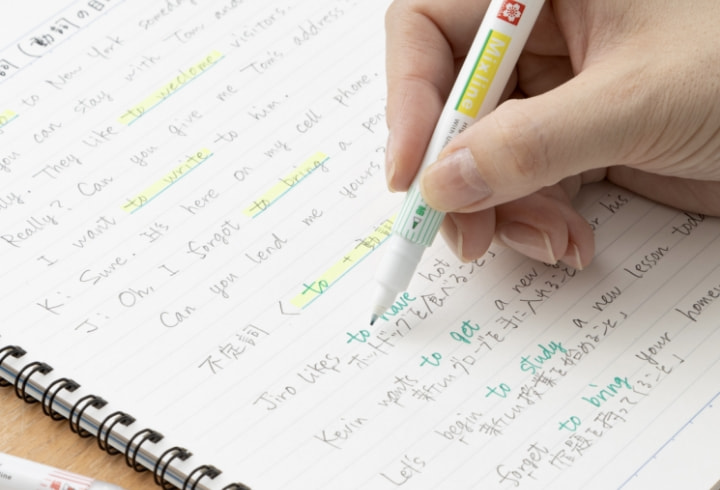 詞 (動詞の目
to New York someday
you can stay with Tom and
They like to welcome visitors.
Really? Can you give me Tom's address?
I want to write to him.
K: Sure. It's here on my cell phone.
J: Oh, I forgot to bring a pen
Can you lend me yours?
不定詞 〈 to + 動詞
Jiro likes to have hot
ホットドッグを食べること」
Kevin wants to get a new for his
新しいグローブを手に入れること」
Let's begin to study a new lesson today
新しい授業を始めること」
forget to bring your homew
宿題を持ってくること」
Mix line